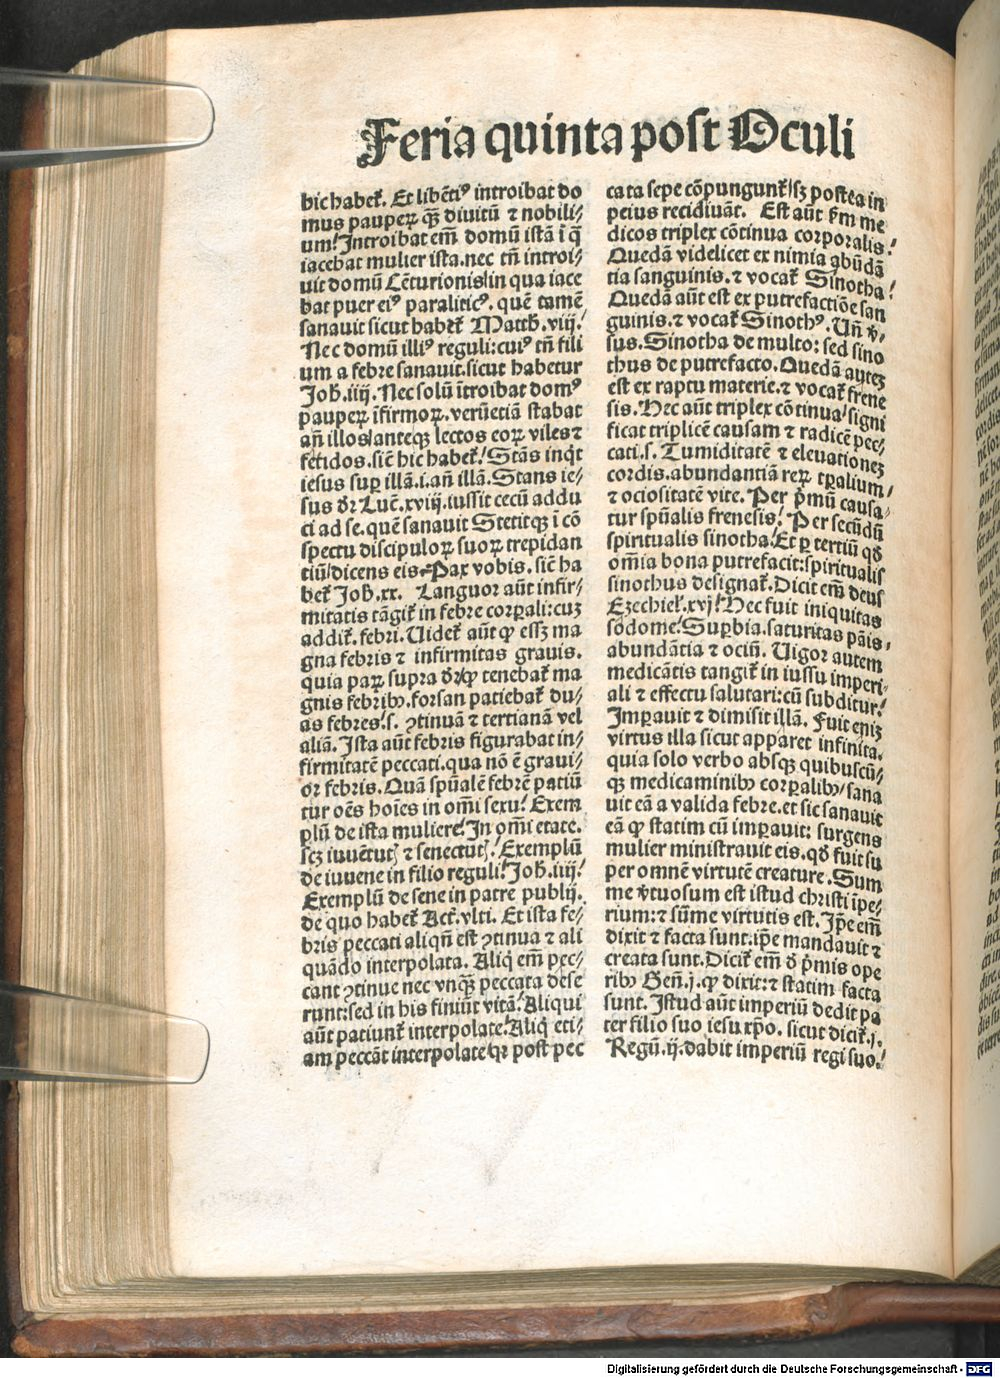 Feria quinta post Oculi
hic habet᷑. Et libẽtiꝰ introibat do
mus pauperꝝ qꝫ diuitũ ⁊ nobili⸗
um! Introibat em̃ domũ istã ĩ q̃
iacebat mulier ista. nec tñ introi⸗
uit domũ Cẽturionis/in qua iace
bat puer eiꝰ paraliticꝰ. quẽ tamẽ
sanauit sicut habet᷑ Matth. viij.
Nec domũ illiꝰ reguli: cuiꝰ tñ fili
um a febre sanauit. sicut habetur
Joh̃. iiij. Nec solũ ĩtroibat domꝰ
pauperꝝ ĩfirmoꝝ. verũetiã stabat
añ illos/anteqꝫ lectos eoꝝ viles ⁊
fetidos. sič hic habet᷑! Stãs inqͥt
iesus suꝑ illã. i. añ illã. Stans ie⸗
sus dr̃ Luč. xviij. iussit cecũ addu
ci ad se. quẽ sanauit Stetitqꝫ ĩ cõ
spectu discipuloꝝ suoꝝ trepidan
tiũ/dicens eis. Pax vobis. sič ha
bet᷑ Joh̃. xx. Languor aũt infir⸗
mitatis tãgit᷑ in febre corꝑali: cuꝫ
addit᷑. febri. Uidet᷑ aũt ꝙ essꝫ ma
gna febris ⁊ infirmitas grauis.
quia paꝝ supra dr̃/ꝙ tenebat᷑ ma
gnis febribꝰ. forsan patiebat᷑ du⸗
as febres. s. ꝯtinuã ⁊ tertianã vel
aliã. Ista aũt febris figurabat in⸗
firmitatẽ peccati. qua nõ ẽ graui⸗
or febris. Quã spũalẽ febrẽ patiũ
tur oẽs hoĩes in om̃i sexu! Exem
plũ de ista muliere! In om̃i etate.
scꝫ iuuẽtutꝭ ⁊ senectutꝭ! Exemplũ
de iuuene in filio reguli! Joh̃. iiij.
Exemplũ de sene in patre publij.
de quo habet᷑ Act̃. vlti. Et ista fe⸗
bris peccati aliqñ est ꝯtinua ⁊ ali
quãdo interpolata. Aliq̃ em̃ pec⸗
cant ꝯtinue nec vnqꝫ peccata dese
runt: sed in his finiũt vitã! Aliqui
aũt patiunt᷑ interpolate! Aliq̃ eti⸗
am peccãt interpolate/qꝛ post pec
cata sepe cõpungunt᷑/sꝫ postea in
peius recidiuãt. Est aũt ẜm me
dicos triplex cõtinua corporalis!
Quedã videlicet ex nimia abũdã
tia sanguinis. ⁊ vocat᷑ Sinotha!
Quedã aũt est ex putrefactiõe san
guinis. ⁊ vocat᷑ Sinothꝰ. Uñ v̾⸗
sus. Sinotha de multo: sed sino
thus de putrefacto. Quedã auteꝫ
est ex raptu materie. ⁊ vocat᷑ frene
sis. Hec aũt triplex cõtinua/signi
ficat triplicẽ causam ⁊ radicẽ pec⸗
cati. s. Tumiditatẽ ⁊ eleuationeꝫ
cordis. abundantiã reꝝ tꝑalium/
⁊ ociositatẽ vite. Per pͥmũ causa⸗
tur spũalis frenesis! Per secũdũ
spiritualis sinotha! Et ꝑ tertiũ qð
om̃ia bona putrefacit: spiritualis
sinothus designat᷑. Dicit em̃ deus
Ezechiel̃. xvj! Hec fuit iniquitas
sodome! Suꝑbia. saturitas pãis.
abundãtia ⁊ ociũ. Uigor autem
medicãtis tangit᷑ in iussu imperi⸗
ali ⁊ effectu salutari: cũ subditur!
Imꝑauit ⁊ dimisit illã. Fuit eniꝫ
virtus illa sicut apparet infinita.
quia solo verbo absqꝫ quibuscũ⸗
qꝫ medicaminibꝰ corꝑalibꝰ/sana
uit eã a valida febre. et sic sanauit
eã ꝙ statim cũ imꝑauit: surgens
mulier ministrauit eis. qð fuit su
per omnẽ virtutẽ creature. Sum
me v̾tuosum est istud christi ĩpe⸗
rium: ⁊ sũme virtutis est. Ip̃e em̃
dixit ⁊ facta sunt. ip̃e mandauit ⁊
creata sunt. Dicit᷑ em̃ ð pͥmis ope
ribꝰ Geñ. j. ꝙ dixit: ⁊ statim facta
sunt. Istud aũt imperiũ dedit pa
ter filio suo iesu xp̃o. sicut dicit᷑. j.
Regũ. ij. dabit imperiũ regi suo.
Digitalisierung gefördert durch die Deutsche Forschungsgemeinschaft - DFG